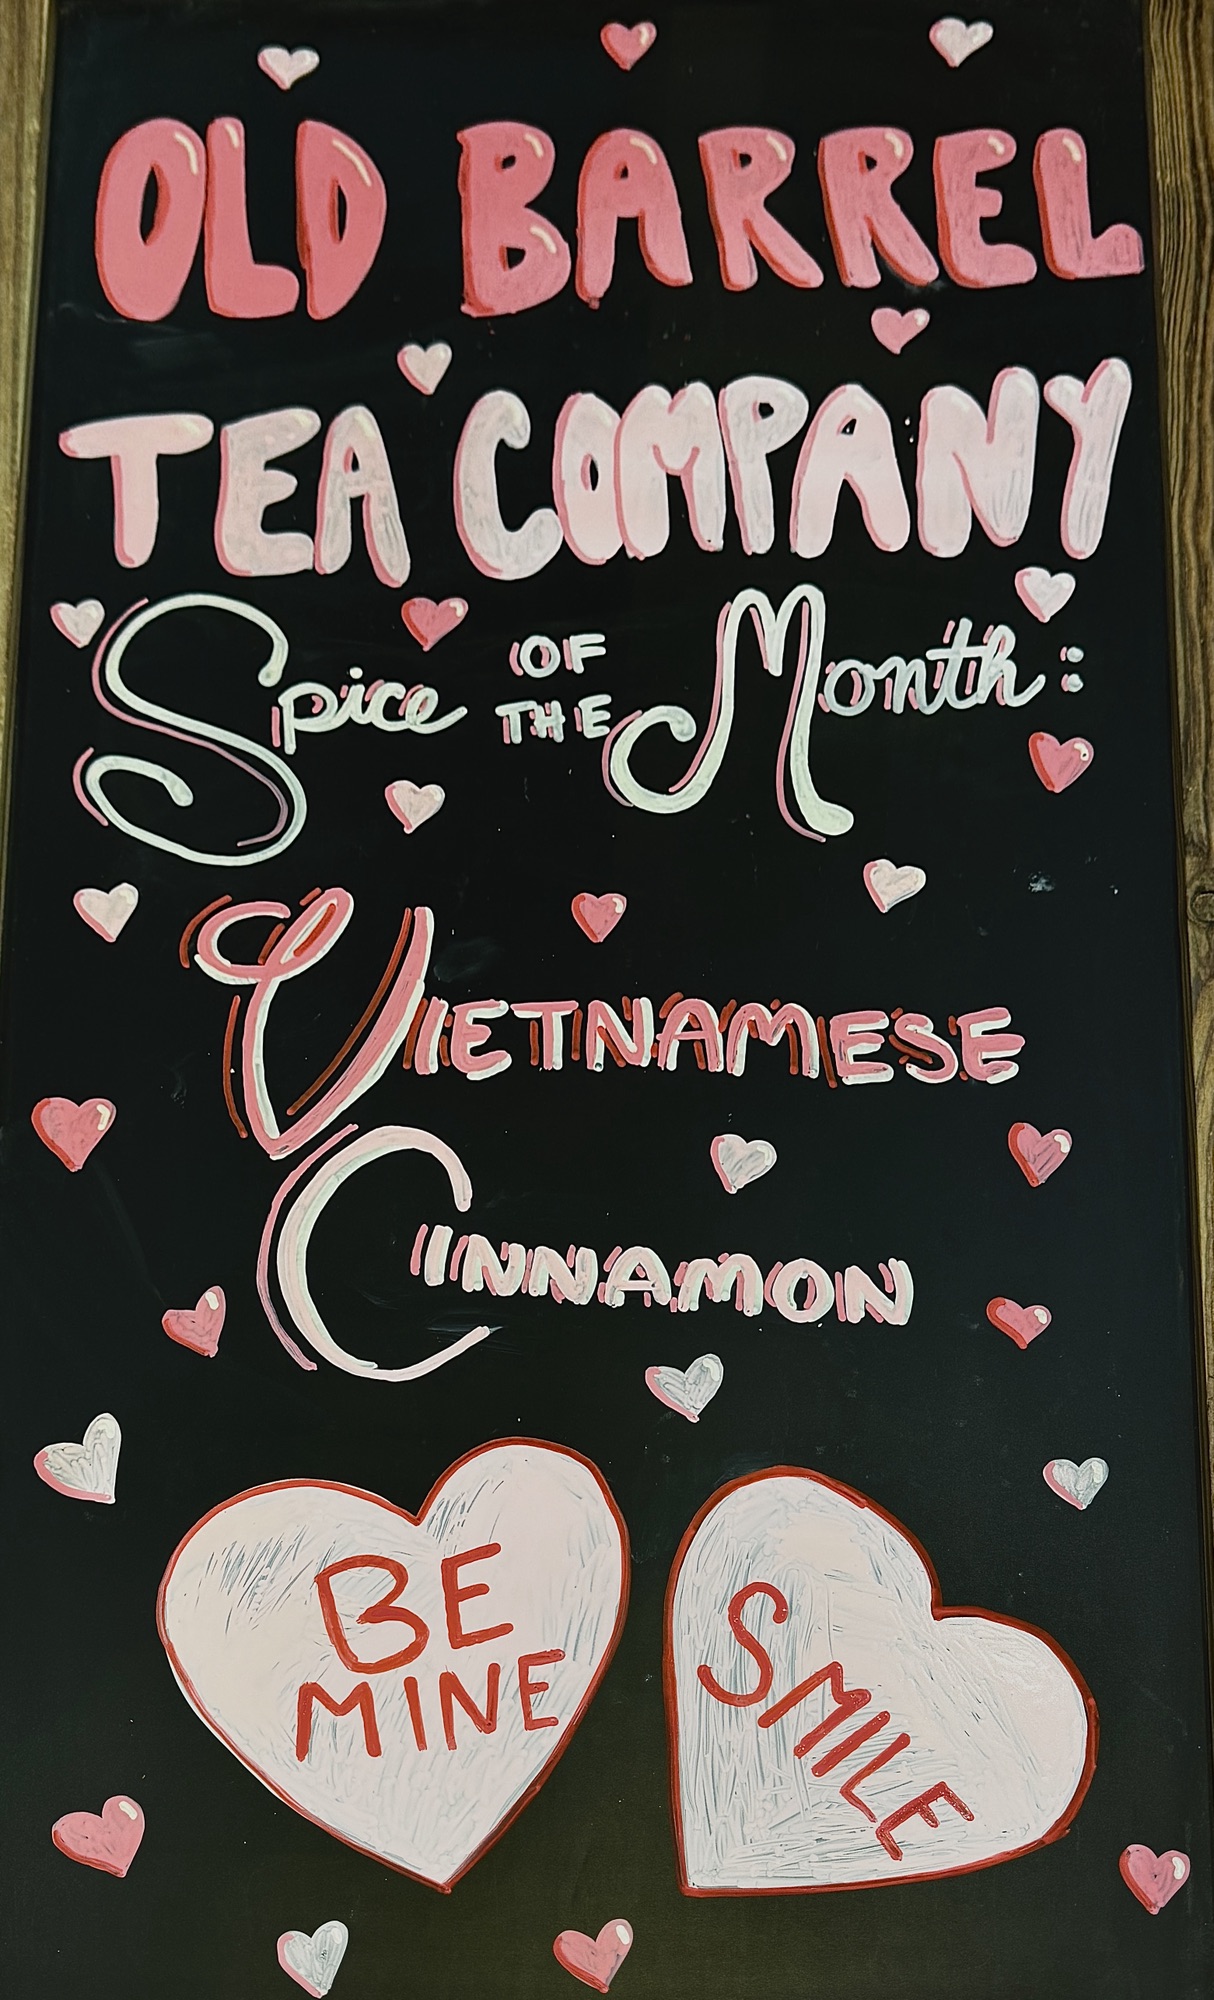 OLD BARREL
TEA COMPANY
Spice OF THE Month:
VIETNAMESE
CINNAMON
BE
MINE
SMILE